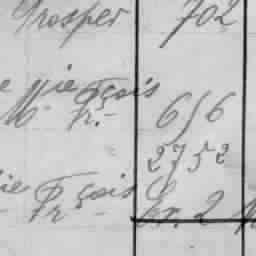 Prosper 702
Mie Fçois
Fr. - 656
2752
ie Fçois
Fr - Ex. 2